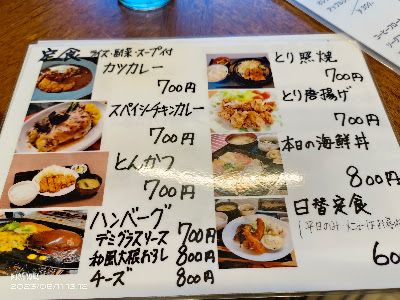 定食 ライス・副菜・スープ付
カツカレー
700円
スパイシーチキンカレー
700円
とんかつ
700円
ハンバーグ
デミグラスソース 700円
和風大根おろし 800円
チーズ 800円
とり照焼
700円
とり唐揚げ
700円
本日の海鮮丼
800円
日替定食
(平日のみ メニューは
60
2023/08/11 13:13